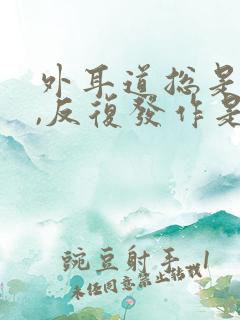 外耳道總是
,反復發作是
豌豆射手_1
未任同意禁止转载